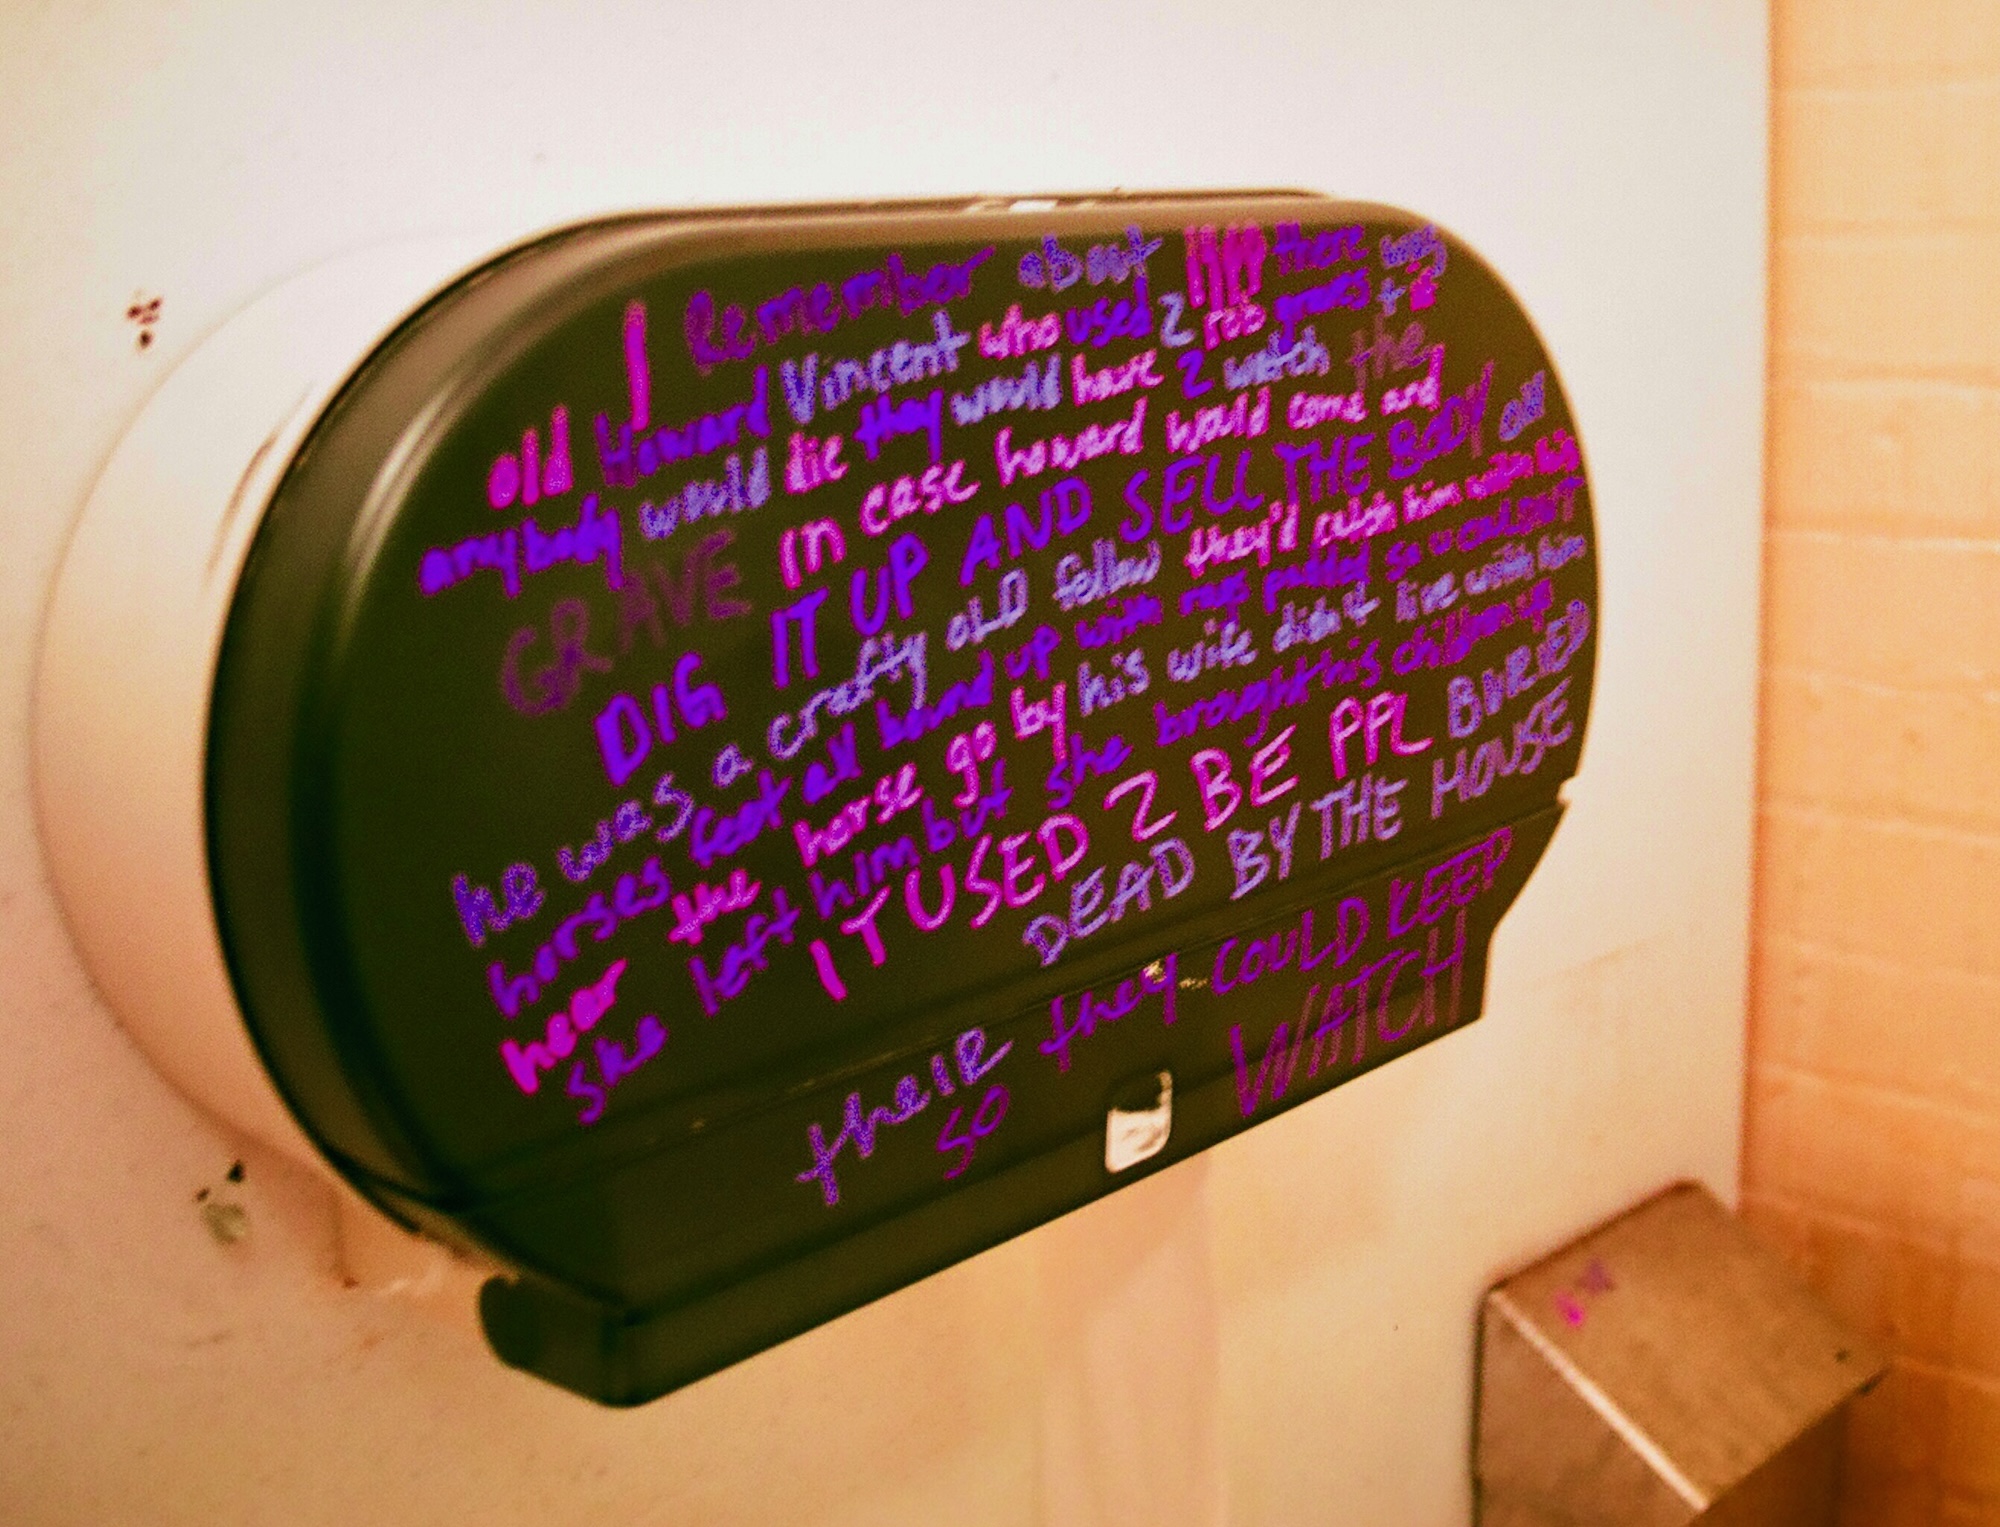 I Remember about there was
old Howard Vincent who used 2 rob graves + if
anybody would die they would have 2 watch the
GRAVE in case howard would come and
DIG IT UP AND SELL THE BODY oh
he was a crafty oLD fellow they'd catch him with his
horses feet all bound up with rags padded so u couldn't
hear the horse go by his wife didn't live with him
she left him but she brought his children up
IT USED 2 BE PPL BURIED
theIR DEAD BY THE HOUSE
so they COULD KEEP
WATCH